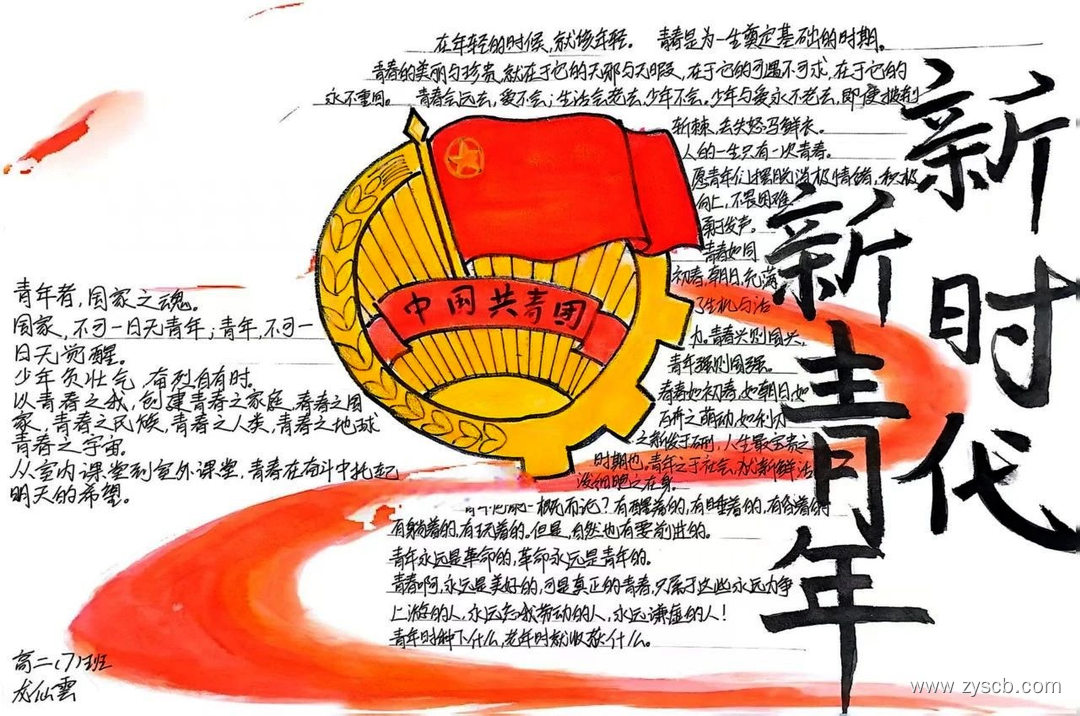 新时代
新青年
在年轻的时候,就该年轻。 青春是为一生奠定基础的时期。
青春的美丽与珍贵,就在于它的无邪与无暇,在于它的可遇不可求,在于它的
永不重回。 青春会远去,爱不会;生活会老去,少年不会。少年与爱永不老去,即便披荆
斩棘,丢失怒马鲜衣。
人的一生只有一次青春。
愿青年们摆脱消极情绪,积极
向上,不畏困难
勇于发声。
青春如同
初春,朝日,充满
了生机与活
力。青春兴则国兴,
青年强则国强。
青春如初春,如朝日,如
百卉之萌动,如利刃
之新发于硎,人生最宝贵之
时期也。青年之于社会,犹新鲜活
泼细胞之在身。
一概而论?有醒着的,有睡着的,有昏着的
有躺着的,有玩着的。但是,自然也有要前进的。
青年永远是革命的,革命永远是青年的。
青春啊,永远是美好的,可是真正的青春,只属于这些永远力争
上游的人,永远忘我劳动的人,永远谦虚的人!
青年时种下什么,老年时就收获什么。
中国共青团
青年者,国家之魂。
国家,不可一日无青年;青年,不可一
日无觉醒。
少年负壮气,奋烈自有时。
以青春之我,创建青春之家庭,青春之国
家,青春之民族,青春之人类,青春之地球
青春之宇宙。
从室内课堂到室外课堂,青春在奋斗中托起
明天的希望。
高二(7)班
龙仙雲
www.zyscb.com